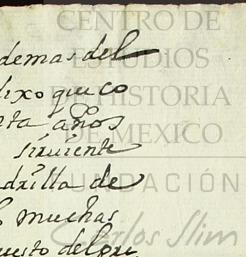 demas del
dixo que co
nta años
siruiente
drilla de
muchas
uesto del
CENTRO DE
ESTUDIOS
DE HISTORIA
DE MEXICO
FUNDACIÓN
Carlos Slim